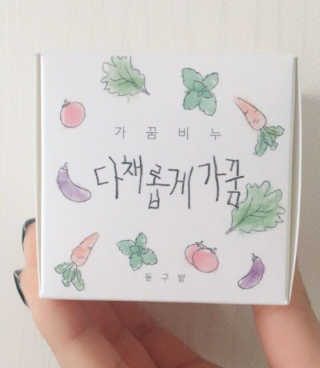 가꿈비누
다채롭게 가꿈
동구밭